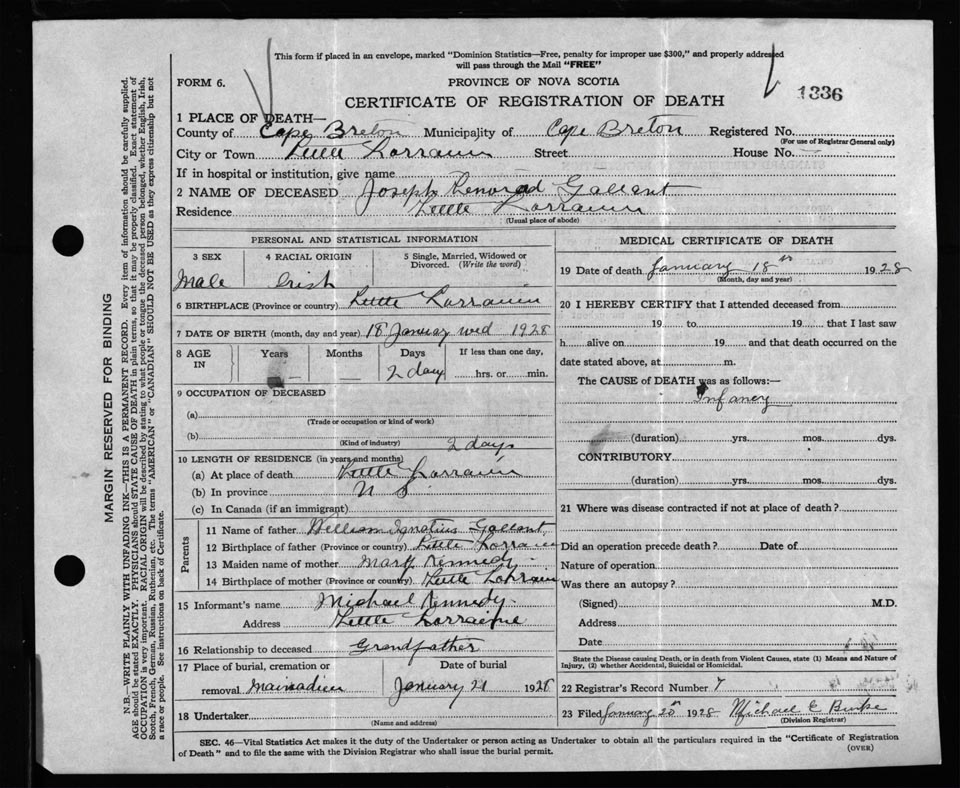 This form if placed in an envelope, marked "Dominion Statistics—Free, penalty for improper use $300," and properly addressed
will pass through the Mail "FREE"
FORM 6.
PROVINCE OF NOVA SCOTIA
CERTIFICATE OF REGISTRATION OF DEATH
1336
1 PLACE OF DEATH—
County of Cape Breton Municipality of Cape Breton Registered No.
(For use of Registrar General only)
City or Town Little Lorrain Street House No.
If in hospital or institution, give name
2 NAME OF DECEASED Joseph Gallant
Residence Little Lorrain
(Usual place of abode)
PERSONAL AND STATISTICAL INFORMATION
3 SEX
Male
4 RACIAL ORIGIN
Irish
5 Single, Married, Widowed or
Divorced. (Write the word)
6 BIRTHPLACE (Province or country) Little Lorrain
7 DATE OF BIRTH (month, day and year) 18 January wed 1928
8 AGE
IN
Years
Months
Days
2 day
If less than one day,
hrs. or min.
9 OCCUPATION OF DECEASED
(a)
(Trade or occupation or kind of work)
(b)
(Kind of industry)
2 days
10 LENGTH OF RESIDENCE (in years and months)
(a) At place of death Little Lorrain
(b) In province N S
(c) In Canada (if an immigrant)
Parents
11 Name of father William Ignatius Gallant
12 Birthplace of father (Province or country) Little Lorrain
13 Maiden name of mother Mary Kennedy
14 Birthplace of mother (Province or country) Little Lorrain
15 Informant's name Michael Kennedy
Address Little Lorraine
16 Relationship to deceased Grandfather
17 Place of burial, cremation or
removal Mainadieu
Date of burial
January 21 1928
18 Undertaker
(Name and address)
MEDICAL CERTIFICATE OF DEATH
19 Date of death January 18th 1928
(Month, day and year)
20 I HEREBY CERTIFY that I attended deceased from
19 to 19 that I last saw
h alive on 19 and that death occurred on the
date stated above, at m.
The CAUSE of DEATH was as follows:—
Infancy
(duration) yrs. mos. dys.
CONTRIBUTORY
(duration) yrs. mos. dys.
21 Where was disease contracted if not at place of death?
Did an operation precede death? Date of
Nature of operation
Was there an autopsy?
(Signed) M.D.
Address
Date
State the Disease causing Death, or in death from Violent Causes, state (1) Means and Nature of
Injury, (2) whether Accidental, Suicidal or Homicidal.
22 Registrar's Record Number 7
23 Filed January 20th 1928 Michael E Burke
(Division Registrar)
SEC. 46—Vital Statistics Act makes it the duty of the Undertaker or person acting as Undertaker to obtain all the particulars required in the "Certificate of Registration
of Death" and to file the same with the Division Registrar who shall issue the burial permit.
(OVER)
MARGIN RESERVED FOR BINDING
N.B.—WRITE PLAINLY WITH UNFADING INK—THIS IS A PERMANENT RECORD. Every item of information should be carefully supplied.
AGE should be stated EXACTLY. PHYSICIANS should STATE CAUSE OF DEATH in plain terms, so that it may be properly classified. Exact statement of
OCCUPATION is very important. RACIAL ORIGIN will be described by stating to what people or tongue the deceased person belonged, whether English, Irish,
Scotch, French, German, Russian, Ruthenian, etc. The terms "AMERICAN" or "CANADIAN" SHOULD NOT BE USED as they express citizenship but not
a race or people. See instructions on back of Certificate.